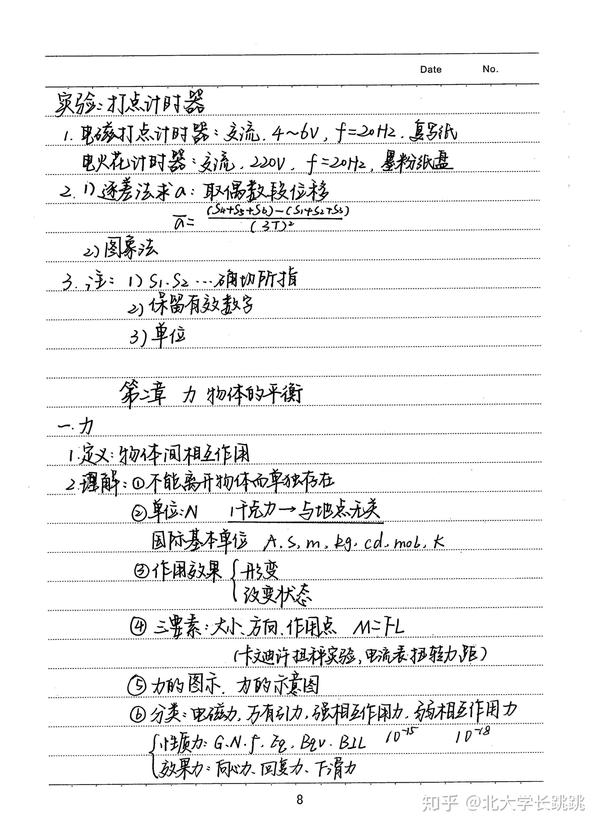 Date No.
实验:打点计时器
1. 电磁打点计时器:交流,4~6V,f=20Hz,复写纸
电火花计时器:交流,220V,f=20Hz,墨粉纸盘
2. 1)逐差法求a:取偶数段位移
a̅=((S4+S5+S6)-(S1+S2+S3))/(3T)²
2)图象法
3. 注:1)S1、S2…确切所指
2)保留有效数字
3)单位
第二章 力 物体的平衡
一.力
1.定义:物体间相互作用
2.理解:①不能离开物体而单独存在
②单位:N 1千克力→与地点无关
国际基本单位 A, s, m, kg, cd, mol, K
③作用效果{形变
改变状态
④三要素:大小、方向、作用点 M=FL
(卡文迪许扭秤实验,电流表扭转力距)
⑤力的图示、力的示意图
⑥分类:电磁力,万有引力,强相互作用力,弱相互作用力
{性质力:G.N.f.Eq.Bqv.BIL 10⁻¹⁵ 10⁻¹⁸
效果力:向心力、回复力、下滑力
8
知乎 @北大学长跳跳